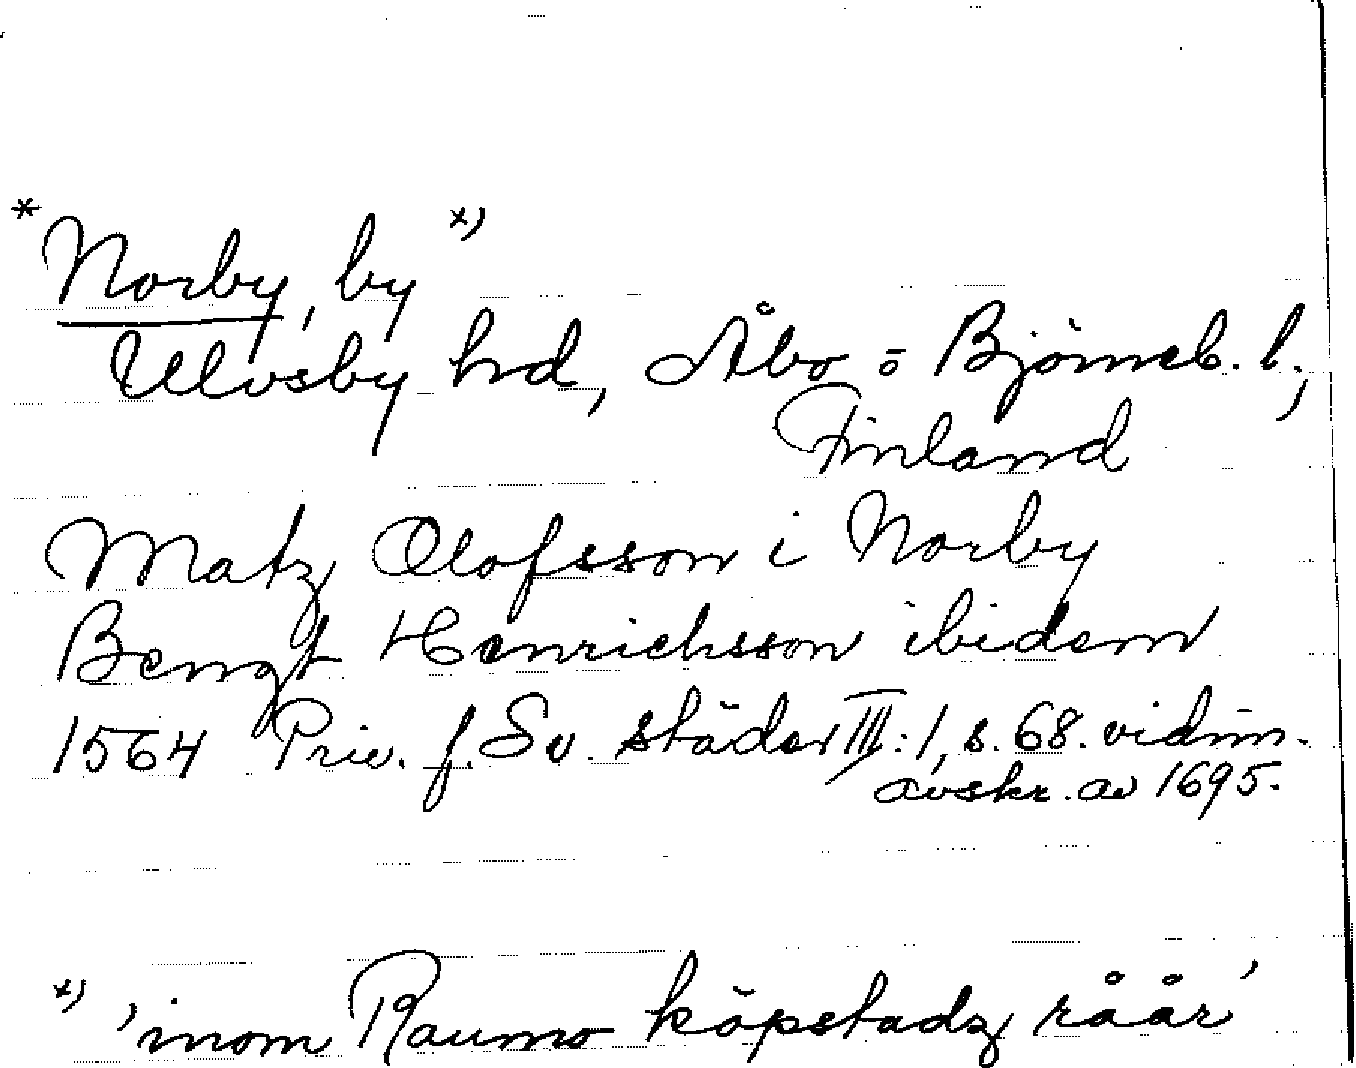 * Norby, by *)
Ulvsby hd, Åbo o Björneb. l.,
Finland
Matz Olofsson i Norby
Bengt Henrichsson ibidem
1564 Priv. f. Sv. städer III:1, s. 68. vidim.
avskr. av 1695.
*) 'inom Raumo köpstadz råår'